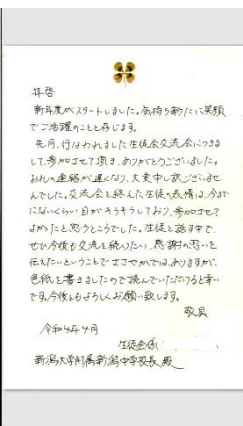 拝啓
新年度がスタートしました。気持ち新たに笑顔
でご活躍のことと存じます。
先月、行なわれました生徒会交流会につきま
して、参加させて頂き、ありがとうございました。
お礼の連絡が遅くなり、大変申し訳ございませ
んでした。交流会を終えた生徒の表情は、今まで
にないくらい目がキラキラしており、参加させて
よかったと思うところでした。生徒と話す中で、
ぜひ今後も交流を続けたい、感謝の思いを
伝えたいということでささやかでは、ありますが、
色紙を書きましたので読んでいただけると幸い
です。今後ともよろしくお願い致します。
敬具
令和4年4月
生徒会係
新潟大学附属新潟中学校長 殿